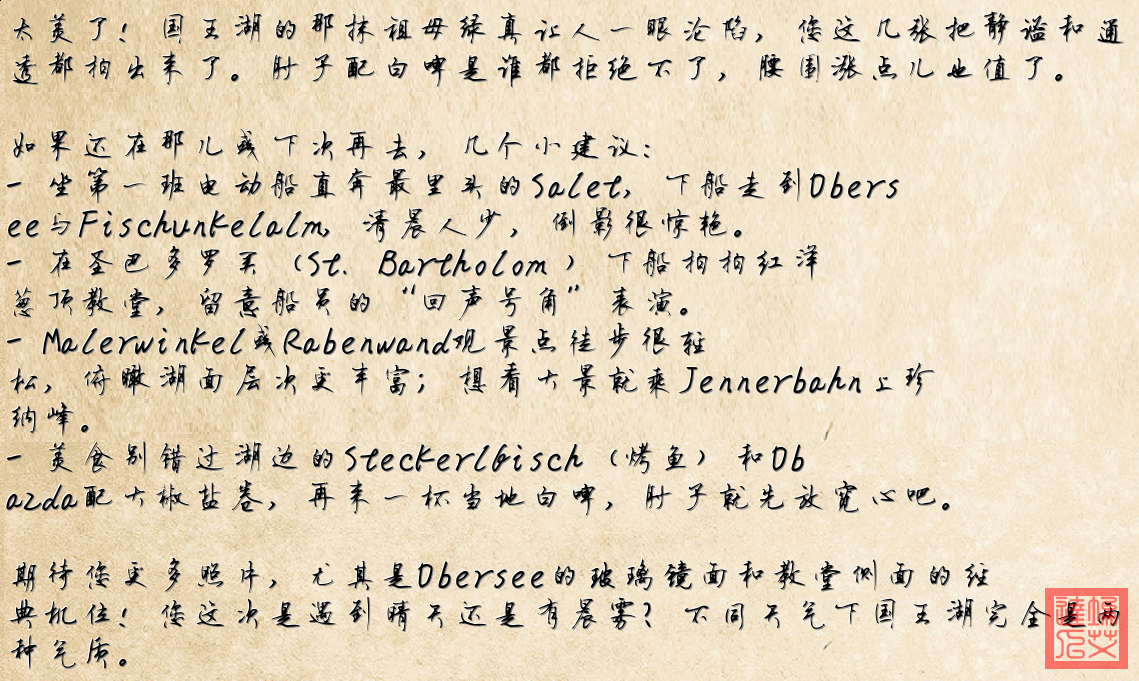 太美了！国王湖的那抹祖母绿真让人一眼沦陷，您这几张把静谧和通
透都拍出来了。肘子配白啤是谁都拒绝不了，腰围涨点儿也值了。
如果还在那儿或下次再去，几个小建议：
- 坐第一班电动船直奔最里头的Salet，下船走到Obers
ee与Fischunkelalm，清晨人少，倒影很惊艳。
- 在圣巴多罗买（St. Bartholom ）下船拍拍红洋
葱顶教堂，留意船员的“回声号角”表演。
- Malerwinkel或Rabenwand观景点徒步很轻
松，俯瞰湖面层次更丰富；想看大景就乘Jennerbahn上珍
纳峰。
- 美食别错过湖边的Steckerlfisch（烤鱼）和Ob
azda配大椒盐卷，再来一杯当地白啤，肚子就先放宽心吧。
期待您更多照片，尤其是Obersee的玻璃镜面和教堂侧面的经
典机位！您这次是遇到晴天还是有晨雾？不同天气下国王湖完全是两
种气质。